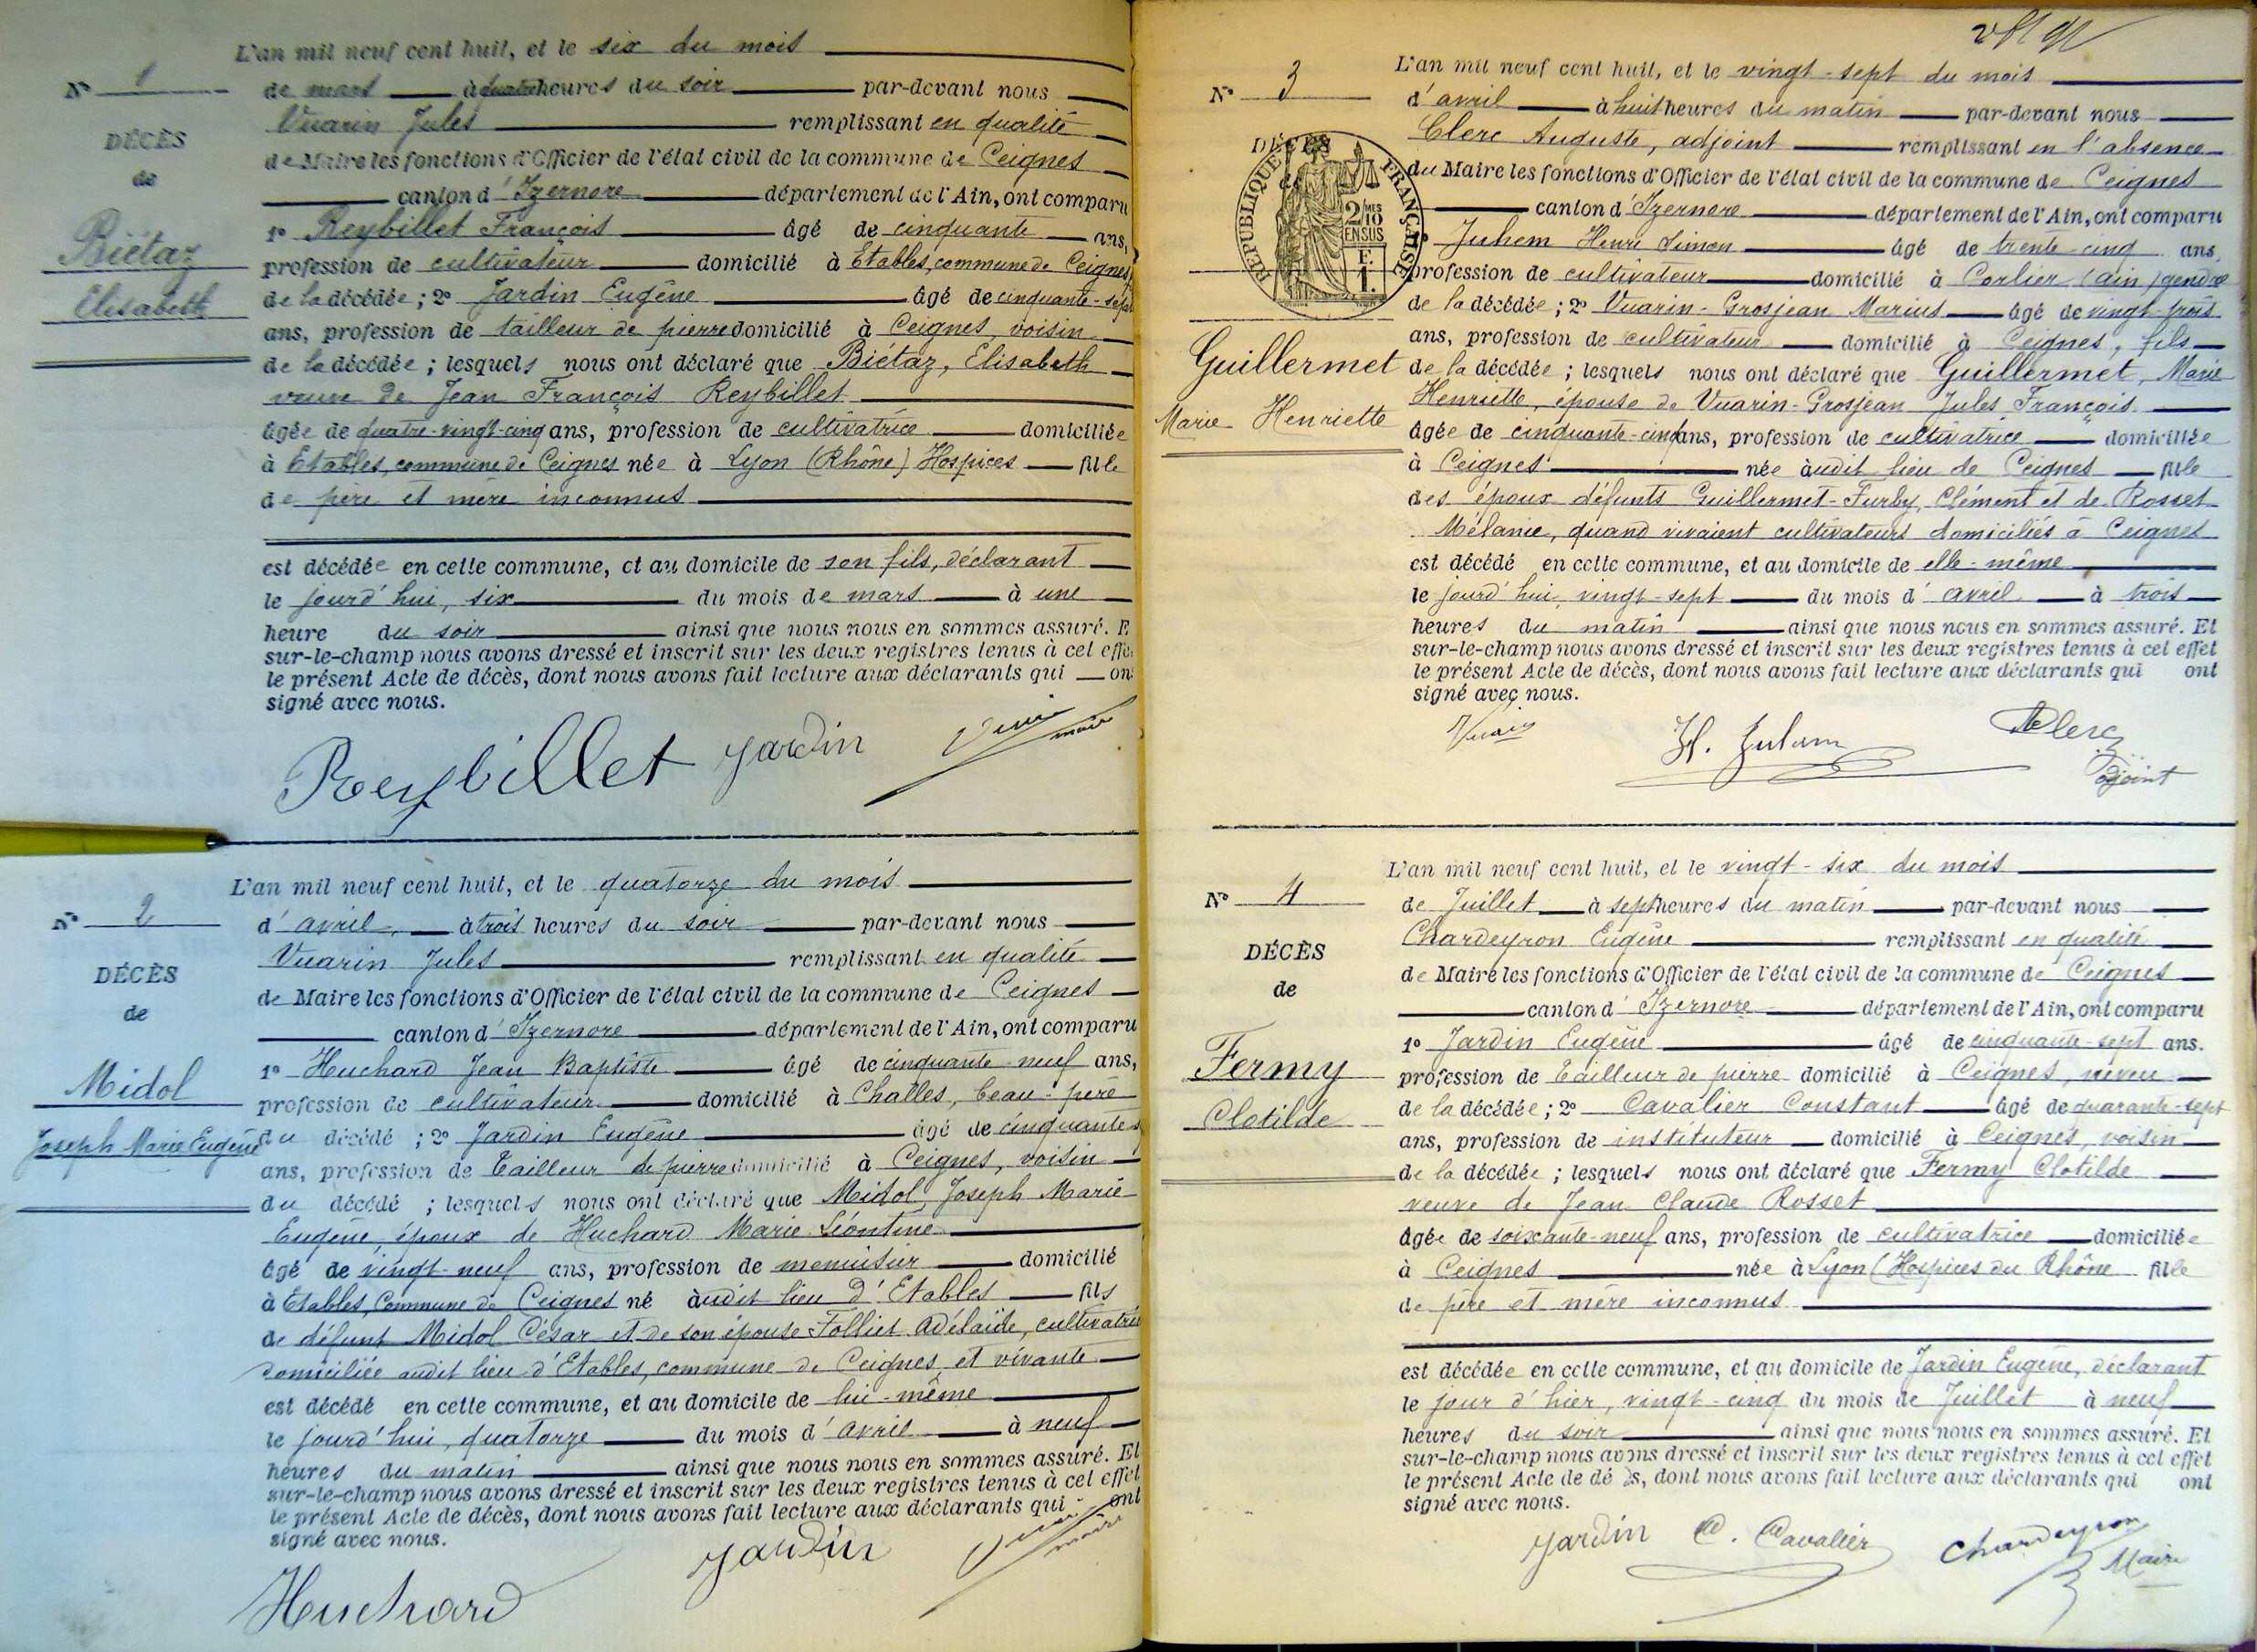 L'an mil neuf cent huit, et le six du mois
N° 1
de mars à quatre heures du soir par-devant nous
Vuarin Jules remplissant en qualité
DÉCÈS
de Maire les fonctions d'Officier de l'état civil de la commune de Ceignes
de
canton d'Izernore département de l'Ain, ont comparu
1° Reybillet François âgé de cinquante ans,
Biétaz
profession de cultivateur domicilié à Etables, commune de Ceignes,
Elisabeth
de la décédée ; 2° Jardin Eugène âgé de cinquante-sept
ans, profession de tailleur de pierre domicilié à Ceignes, voisin
de la décédée ; lesquels nous ont déclaré que Biétaz, Élisabeth
veuve de Jean François Reybillet
âgée de quatre-vingt-cinq ans, profession de cultivatrice domiciliée
à Etables, commune de Ceignes née à Lyon (Rhône) Hospices fille
de père et mère inconnus
est décédée en cette commune, et au domicile de son fils, déclarant
le jourd'hui, six du mois de mars à une
heure du soir ainsi que nous nous en sommes assuré. E
sur-le-champ nous avons dressé et inscrit sur les deux registres tenus à cet effe
le présent Acte de décès, dont nous avons fait lecture aux déclarants qui on
signé avec nous.
Reybillet Jardin Vuarin
maire
L'an mil neuf cent huit, et le quatorze du mois
N° 2
d'avril à trois heures du soir par-devant nous
Vuarin Jules remplissant en qualité
DÉCÈS
de Maire les fonctions d'Officier de l'état civil de la commune de Ceignes
de
canton d'Izernore département de l'Ain, ont comparu
1° Huchard Jean Baptiste âgé de cinquante-neuf ans,
Midol
profession de cultivateur domicilié à Challes, beau-père
Joseph Marie Eugène
du décédé ; 2° Jardin Eugène âgé de cinquante-s
ans, profession de tailleur de pierre domicilié à Ceignes, voisin
du décédé ; lesquels nous ont déclaré que Midol Joseph Marie
Eugène, époux de Huchard Marie Léontine
âgé de vingt-neuf ans, profession de menuisier domicilié
à Etables, Commune de Ceignes né audit lieu d'Etables fils
de défunt Midol César et de son épouse Folliet Adélaïde, cultivatrice
domiciliée audit lieu d'Etables, commune de Ceignes et vivante
est décédé en cette commune, et au domicile de lui-même
le jourd'hui, quatorze du mois d'avril à neuf
heures du matin ainsi que nous nous en sommes assuré. Et
sur-le-champ nous avons dressé et inscrit sur les deux registres tenus à cet effet
le présent Acte de décès, dont nous avons fait lecture aux déclarants qui ont
signé avec nous.
Huchard Jardin Vuarin
maire
L'an mil neuf cent huit, et le vingt-sept du mois
N° 3
d'avril à huit heures du matin par-devant nous
Clerc Auguste, adjoint remplissant en l'absence
DÉCÈS
RÉPUBLIQUE FRANÇAISE
2/10 MES
EN SUS
F.
1.
du Maire les fonctions d'Officier de l'état civil de la commune de Ceignes
canton d'Izernore département de l'Ain, ont comparu
Juhem Henri Simon âgé de trente-cinq ans,
profession de cultivateur domicilié à Corlier (Ain) gendre
de la décédée ; 2° Vuarin-Grosjean Marius âgé de vingt-trois
ans, profession de cultivateur domicilié à Ceignes, fils
Guillermet
de la décédée ; lesquels nous ont déclaré que Guillermet, Marie
Marie Henriette
Henriette, épouse de Vuarin-Grosjean Jules François
âgée de cinquante-cinq ans, profession de cultivatrice domiciliée
à Ceignes née audit lieu de Ceignes fille
des époux défunts Guillermet-Furby, Clément et de Rosset
Mélanie, quand vivaient cultivateurs domiciliés à Ceignes
est décédé en cette commune, et au domicile de elle-même
le jourd'hui, vingt-sept du mois d'avril à trois
heures du matin ainsi que nous nous en sommes assuré. Et
sur-le-champ nous avons dressé et inscrit sur les deux registres tenus à cet effet
le présent Acte de décès, dont nous avons fait lecture aux déclarants qui ont
signé avec nous.
Vuarin H. Juhem AClerc
adjoint
L'an mil neuf cent huit, et le vingt-six du mois
N° 4
de Juillet à sept heures du matin par-devant nous
Chardeyron Eugène remplissant en qualité
DÉCÈS
de Maire les fonctions d'Officier de l'état civil de la commune de Ceignes
de
canton d'Izernore département de l'Ain, ont comparu
1° Jardin Eugène âgé de cinquante-sept ans.
Fermy
profession de tailleur de pierre domicilié à Ceignes, neveu
Clotilde
de la décédée ; 2° Cavalier Constant âgé de quarante-sept
ans, profession de instituteur domicilié à Ceignes, voisin
de la décédée ; lesquels nous ont déclaré que Fermy Clotilde
veuve de Jean Claude Rosset
âgée de soixante-neuf ans, profession de cultivatrice domiciliée
à Ceignes née à Lyon (Hospices du Rhône fille
de père et mère inconnus
est décédée en cette commune, et au domicile de Jardin Eugène, déclarant
le jour d'hier, vingt-cinq du mois de Juillet à neuf
heures du soir ainsi que nous nous en sommes assuré. Et
sur-le-champ nous avons dressé et inscrit sur les deux registres tenus à cet effet
le présent Acte de dé s, dont nous avons fait lecture aux déclarants qui ont
signé avec nous.
Jardin C. Cavalier Chardeyron
Maire